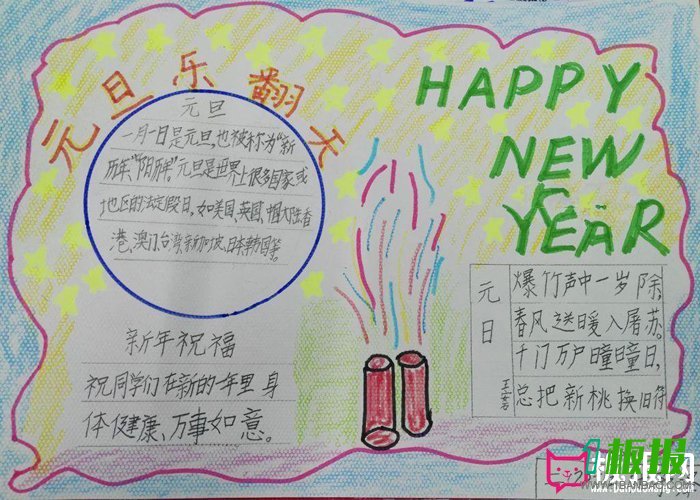 元旦乐翻天
HAPPY
NEW
YEAR
元旦
一月一日是元旦,也被称为“新
历年”“阳历年”。元旦是世界上很多国家或
地区的法定假日,如美国、英国、中国大陆香
港、澳门、台湾、新加坡、日本、韩国等。
新年祝福
祝同学们在新的一年里身
体健康、万事如意。
元日
王安石
爆竹声中一岁除,
春风送暖入屠苏。
千门万户曈曈日,
总把新桃换旧符
板报